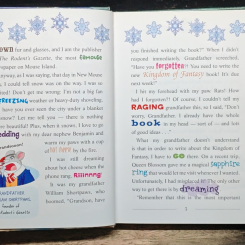 OWN for and glasses, and I am the publisher
The Rodent's Gazette, the most famouse
paper on Mouse Island.
Anyway, as I was saying, that day in New Mouse
I could tell snow was on the way. I was so
ed! Don't get me wrong: I'm not a big fan
FREEZING weather or heavy-duty shoveling.
have you ever seen the city under a blanket
snow? Let me tell you — there is nothing
beautiful! Plus, when it snows, I love to go
sledding with my dear nephew Benjamin and
warm my paws with a cup
by the fire.
I was still dreaming
about hot cheese when the
phone rang. Riiiinnng!
It was my grandfather
William Shortpaws, who
boomed, "Grandson, have
GRANDFATHER
Founder of
The Rodent's Gazette
you finished writing the book?" When I didn't
respond immediately, Grandfather screeched,
"Have you forgotten?! You need to write the
new Kingdom of Fantasy book! It's due
I hit my forehead with my paw. Rats! How
had I forgotten?! Of course I couldn't tell my
RAGING grandfather this, so I said, "Don't
worry, Grandfather, I already have the whole
book in my head — sort of — and lots
of good ideas . . ."
What my grandfather doesn't understand
is that in order to write about the Kingdom of
Fantasy, I have to GO there. On a recent trip,
Queen Blossom gave me a magical sapphire
ring that would let me return whenever I wanted.
Unfortunately, I had misplaced it! The only other
way to get there is by dreaming.
"Remember that this is the most important